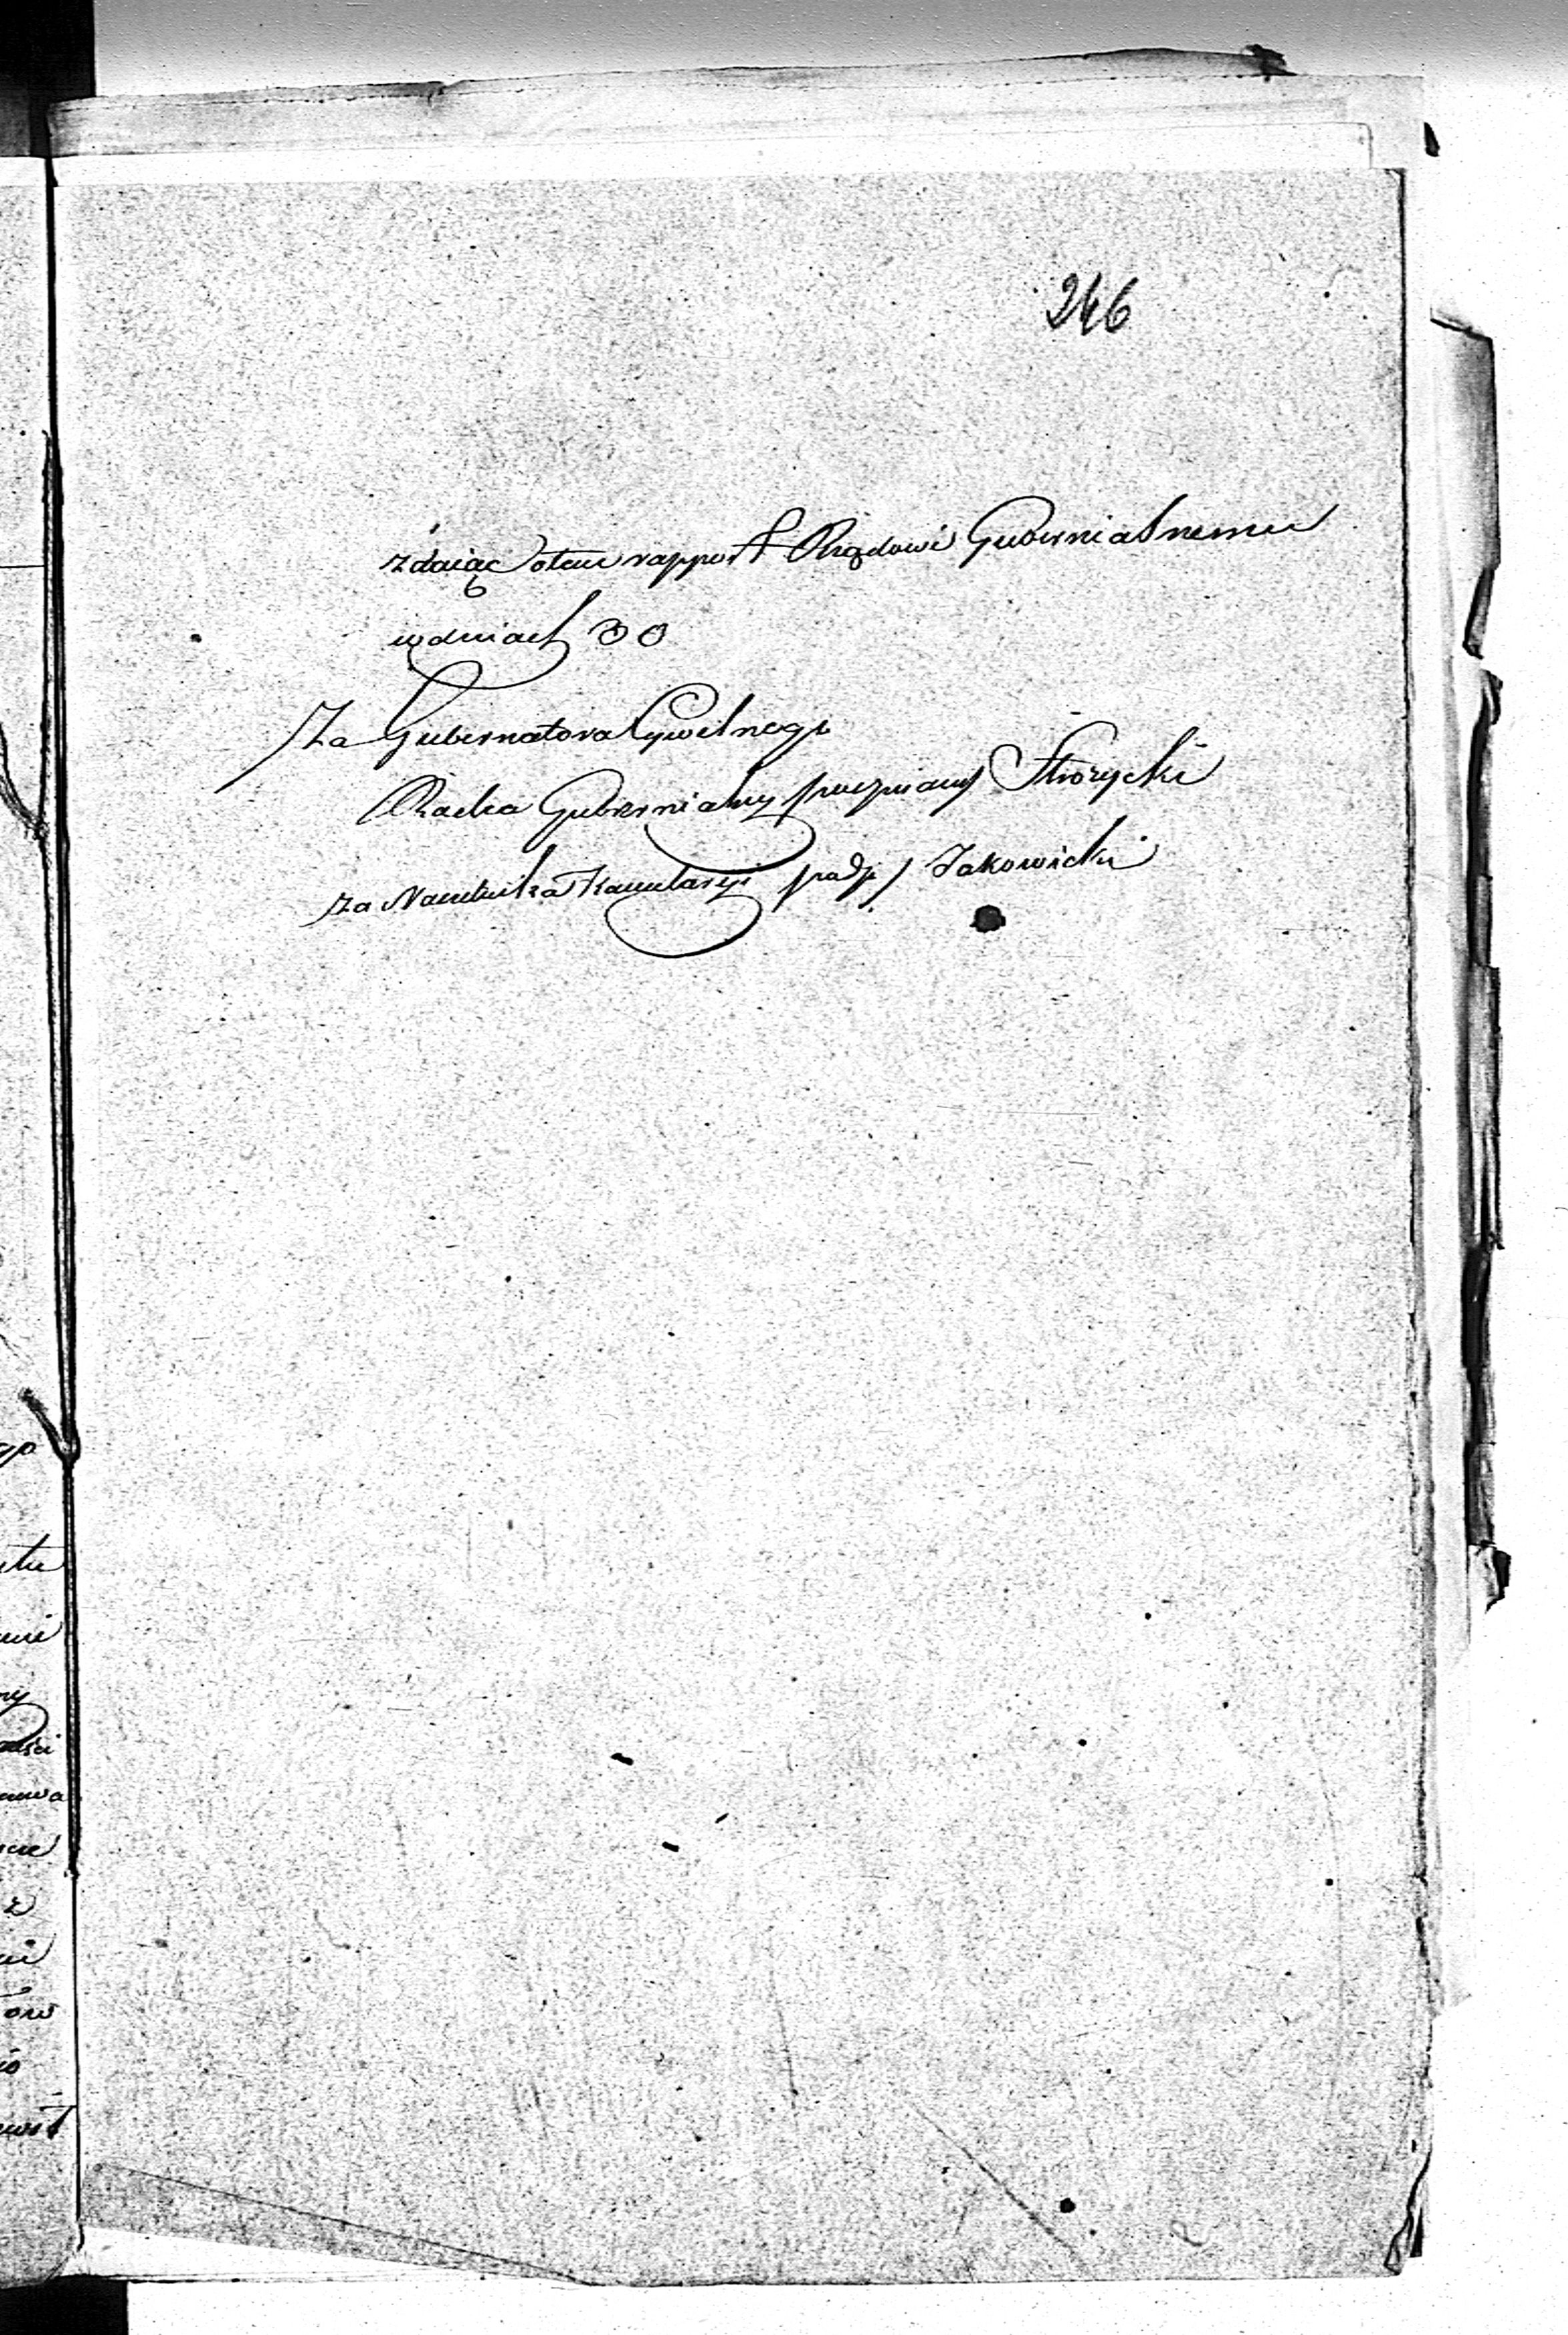 246
zdaiąc otem rapport Rządowi Gubernialnemu
wdniach 30
Za Gubernatora Cywilnego
Radca Gubernialny podpisany
za Naczelnika Kancellaryi podp / Jakowicki